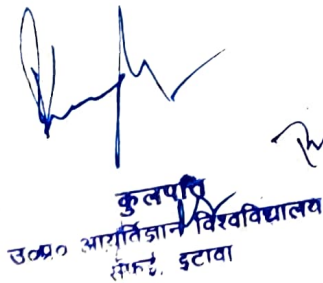 कुलपति
उ०प्र० आयुर्विज्ञान विश्वविद्यालय
सैफई, इटावा